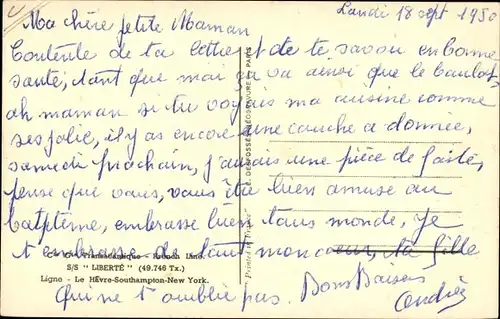 Lundi 18 sept 1950
Ma chère petite Maman
Contente de ta lettre et de te savoir en bonne
santé, tant que moi ça va ainsi que le boulot,
ah maman si tu voyais ma cuisine comme
ses jolie, il y as encore une couche a donnée,
samedi prochain, j'aurais une pièce de faite,
pense que vous, vous être bien amuse au
baptême, embrasse bien tous monde, Je
t embrasse de tout mon coeur, ta fille
qui ne t'oublie pas. Bons Baisers
Andrée
Cie Gle Transatlantique - French Line
S/S " LIBERTÉ " (49.746 Tx.)
Ligne - Le Hâvre-Southampton-New York.
Printed in France